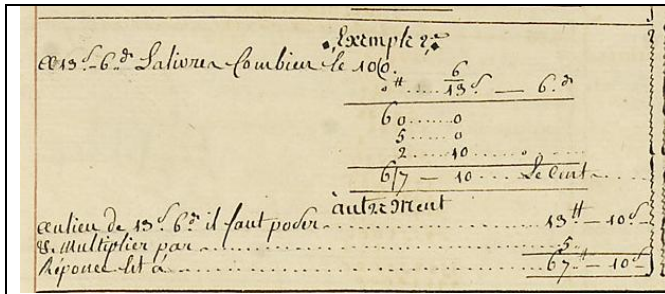 Exemple 2.e
a 13.s 6.d La livre Combien le 100.
6
0 ₶ .... 13 s — 6.d
60 ...... 0
5 ...... 0
2 ...... 10 ......
67 — 10 .... Le Cent
autrement
au lieu de 13.s 6.d il faut poser ........ 13 ₶ — 10 s
& Multiplier par ........ 5
Réponce Est à ........ 67 ₶ — 10 s